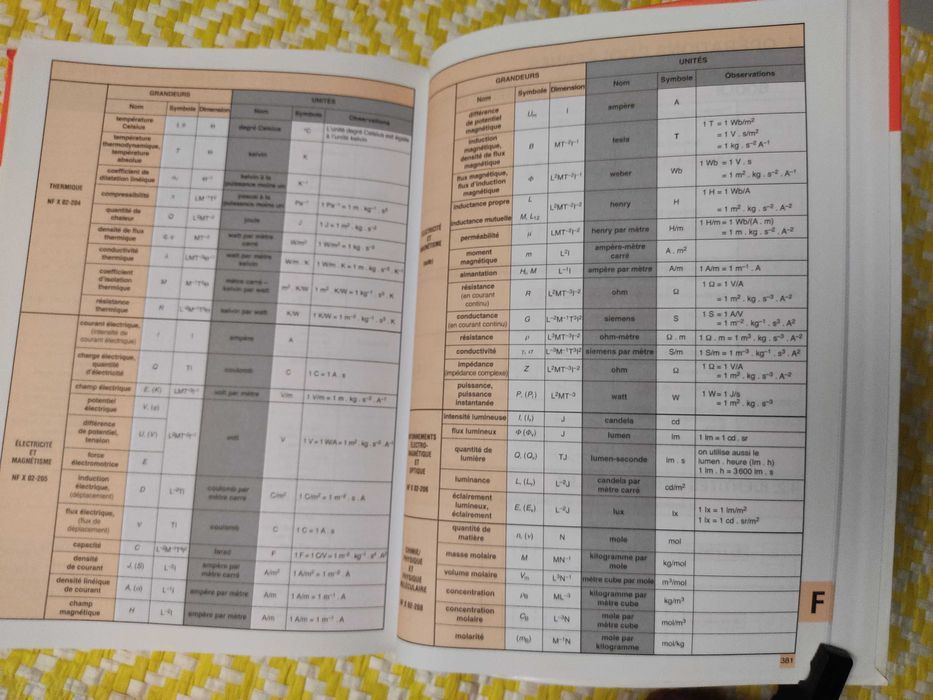 GRANDEURS UNITÉS
Nom Symbole Dimension Nom Symbole Observations
THERMIQUE
NF X 02-204
température Celsius degré Celsius °C L'unité degré Celsius est égale à l'unité kelvin
température thermodynamique, température absolue T kelvin K
coefficient de dilatation linéique kelvin à la puissance moins un K⁻¹
compressibilité pascal à la puissance moins un Pa⁻¹
quantité de chaleur Q joule J
densité de flux thermique watt par mètre carré W/m²
conductivité thermique watt par mètre kelvin
coefficient d'isolation thermique M mètre carré – kelvin par watt m² . K/W
résistance thermique R kelvin par watt K/W
ÉLECTRICITÉ ET MAGNÉTISME
NF X 02-205
courant électrique, (intensité de courant électrique) I I ampère A
charge électrique, quantité d'électricité Q TI coulomb C 1 C = 1 A . s
champ électrique E, (K) volt par mètre V/m 1 V/m = 1 m . kg . s⁻³ . A⁻¹
potentiel électrique V, (φ)
différence de potentiel, tension U, (V) volt V 1 V = 1 W/A = 1 m² . kg . s⁻³ A⁻¹
force électromotrice E
induction électrique, (déplacement) D L⁻²TI coulomb par mètre carré C/m² 1 C/m² = 1 m⁻² . s . A
flux électrique, (flux de déplacement) TI coulomb C 1 C = 1 A . s
capacité C farad F
densité de courant J, (S) L⁻²I ampère par mètre carré A/m² 1 A/m² = 1 m⁻² . A
densité linéique de courant A, (α) L⁻¹I ampère par mètre A/m 1 A/m = 1 m⁻¹ . A
champ magnétique H L⁻¹I ampère par mètre A/m 1 A/m = 1 m⁻¹ . A
GRANDEURS UNITÉS
Nom Symbole Dimension Nom Symbole Observations
différence de potentiel magnétique Uₘ I ampère A
induction magnétique, densité de flux magnétique B MT⁻²I⁻¹ tesla T 1 T = 1 Wb/m²
= 1 V . s/m²
= 1 kg . s⁻² A⁻¹
flux magnétique, flux d'induction magnétique Φ L²MT⁻²I⁻¹ weber Wb 1 Wb = 1 V . s
= 1 m² . kg . s⁻² . A⁻¹
inductance propre L
inductance mutuelle M, L₁₂ L²MT⁻²I⁻² henry H 1 H = 1 Wb/A
= 1 m² . kg . s⁻² . A⁻²
perméabilité μ LMT⁻²I⁻² henry par mètre H/m 1 H/m = 1 Wb/(A . m)
= 1 m . kg . s⁻² . A⁻²
moment magnétique m L²I ampère-mètre carré A . m²
aimantation H, M L⁻¹I ampère par mètre A/m 1 A/m = 1 m⁻¹ . A
résistance (en courant continu) R L²MT⁻³I⁻² ohm Ω 1 Ω = 1 V/A
= 1 m² . kg . s⁻³ . A⁻²
conductance (en courant continu) G L⁻²M⁻¹T³I² siemens S 1 S = 1 A/V
= 1 m⁻² . kg⁻¹ . s³ . A²
résistance ρ L³MT⁻³I⁻² ohm-mètre Ω . m 1 Ω . m = 1 m³ . kg . s⁻³ . A⁻²
conductivité γ, σ L⁻³M⁻¹T³I² siemens par mètre S/m 1 S/m = 1 m⁻³ . kg⁻¹ . s³ . A²
impédance (impédance complexe) Z L²MT⁻³I⁻² ohm Ω 1 Ω = 1 V/A
= 1 m² . kg . s⁻³ . A⁻²
puissance, puissance instantanée P, (Pᵢ) L²MT⁻³ watt W 1 W = 1 J/s
= 1 m² . kg . s⁻³
intensité lumineuse I, (Iᵥ) J candela cd
flux lumineux Φ (Φᵥ) J lumen lm 1 lm = 1 cd . sr
quantité de lumière Q, (Qᵥ) TJ lumen-seconde lm . s on utilise aussi le
lumen . heure (lm . h)
1 lm . h = 3 600 lm . s
luminance L, (Lᵥ) L⁻²J candela par mètre carré cd/m²
éclairement lumineux, éclairement E, (Eᵥ) L⁻²J lux lx 1 lx = 1 lm/m²
1 lx = 1 cd . sr/m²
quantité de matière n, (ν) N mole mol
masse molaire M MN⁻¹ kilogramme par mole kg/mol
volume molaire Vₘ L³N⁻¹ mètre cube par mole m³/mol
concentration ρB ML⁻³ kilogramme par mètre cube kg/m³
concentration molaire CB L⁻³N mole par mètre cube mol/m³
molarité (mB) M⁻¹N mole par kilogramme mol/kg
F
381